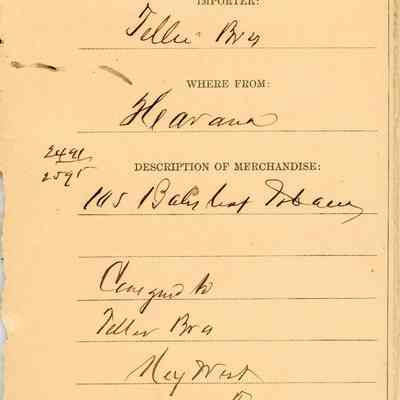 IMPORTER:
Teller Bros
WHERE FROM:
Havana
2491
2595
DESCRIPTION OF MERCHANDISE:
105 Bales leaf Tobacco
Consigned to
Teller Bros
Key West